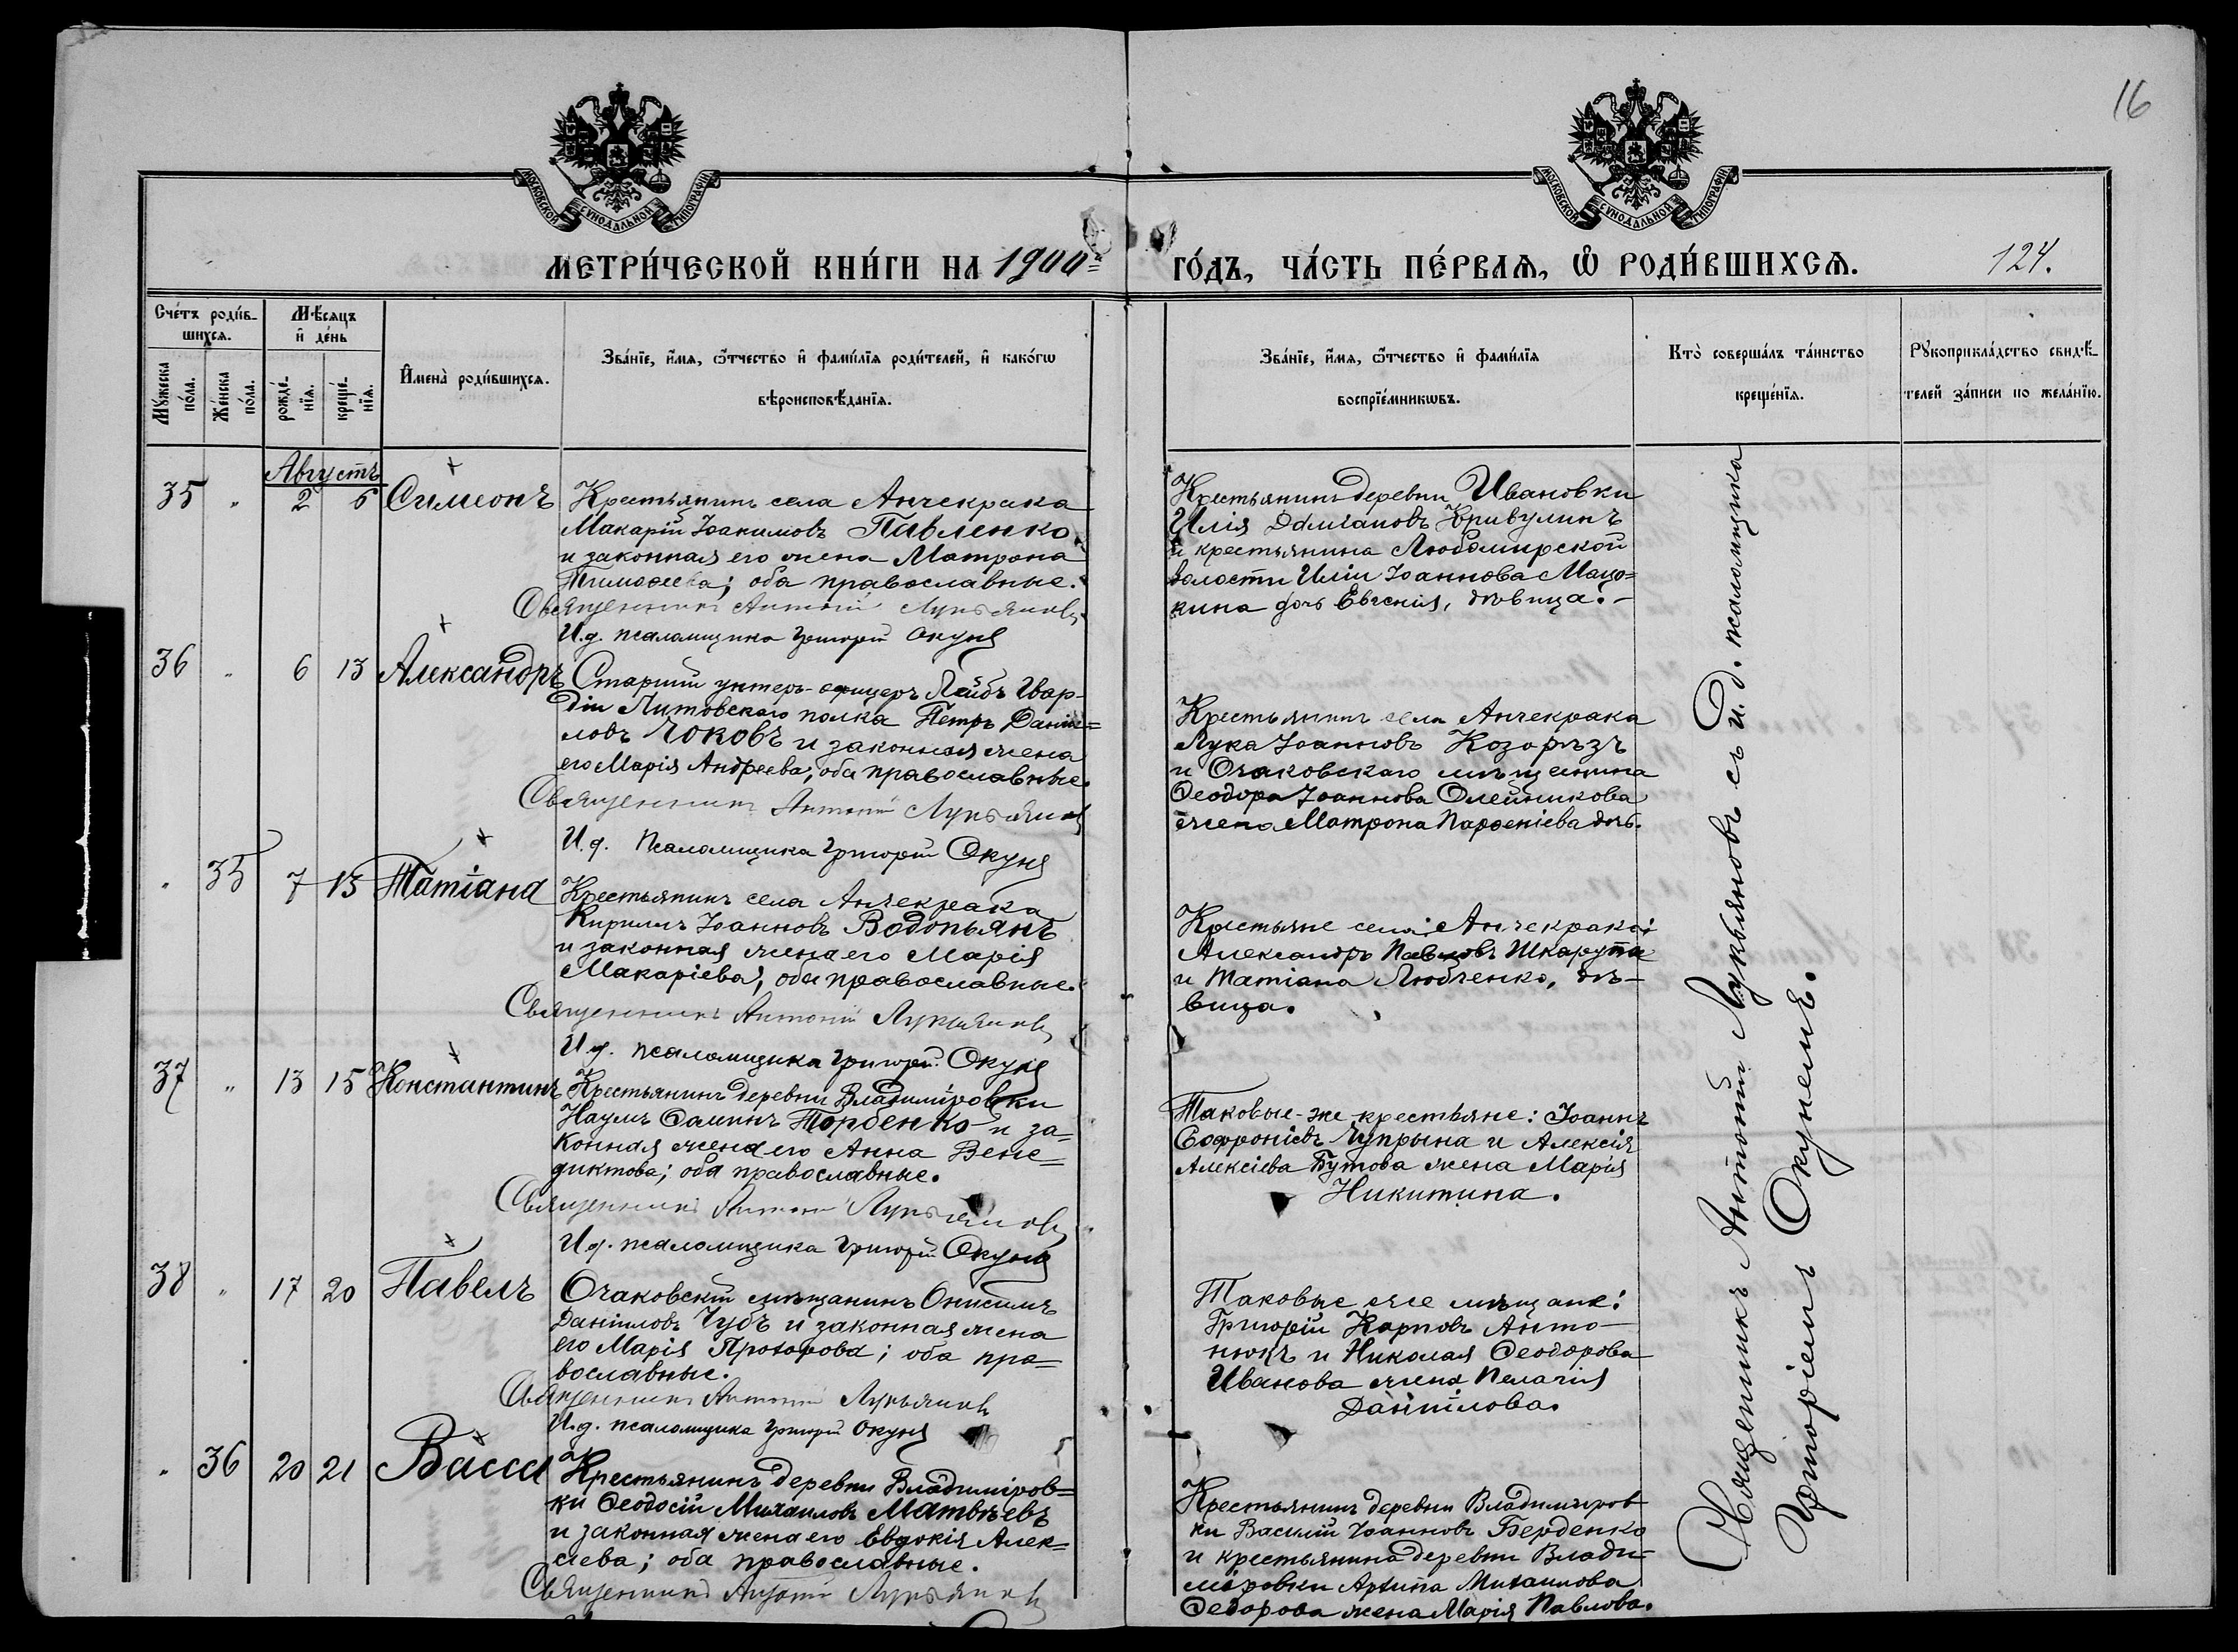 16
МОСКОВСКОЙ СУНОДАЛЬНОЙ ТИПОГРАФІИ
МОСКОВСКОЙ СУНОДАЛЬНОЙ ТИПОГРАФІИ
МЕТРИ́ЧЕСКОЙ КНИ́ГИ НА 1900=
ГО́ДЪ, ЧА́СТЬ ПЕ́РВАѦ, Ѽ РОДИ́ВШИХСѦ.
124.
Сче́тъ роди́в-
шихсѧ.
Мꙋ́жеска по́ла.
Же́нска по́ла.
Мѣ́сяцъ
и҆ де́нь
рожде́-нїѧ.
креще́-нїѧ.
И҆мена̀ роди́вшихсѧ.
Зва́нїе, и҆́мѧ, ѻ҆́тчество и҆ фами́лїѧ роди́телей, и҆ како́гѡ
вѣроисповѣ́данїѧ.
Зва́нїе, и҆́мѧ, ѻ҆́тчество и҆ фами́лїѧ
воспрїе́мникѡвъ.
Кто̀ соверша́лъ та́инство
креще́нїѧ.
Рꙋкоприкла́дство свидѣ́-
телей за́писи по жела́нїю.
Августъ
35 " 2 6 Симеонъ
Крестьянинъ села Анчекрака
Макарій Іоакимовъ Павленко
и законная его жена Матрона
Тимоѳеева; оба православные.
Священникъ Антоній Лукьяновъ
И.д. псаломщика Григорій Окунь
Крестьянинъ деревни Ивановки
Илія Даміановъ Кривулинъ
и крестьянина Любомирской
волости Иліи Іоаннова Мацо=
кина дочь Евгенія, дѣвица.-
36 " 6 13 Александръ
Старшій унтеръ-офицеръ Лейбъ Гвар-
діи Литовскаго полка Петръ Даніи=
ловъ Чоковъ и законная жена
его Марія Андреева; оба православные.
Священникъ Антоній Лукьяновъ
И.д. Псаломщика Григорій Окунь
Крестьянинъ села Анчекрака
Лука Іоанновъ Козорѣзъ
и Очаковскаго мѣщанина
Ѳеодора Іоаннова Олейникова
жена Матрона Парѳеніева дочь.
" 35 7 13 Татіана
Крестьянинъ села Анчекрака
Кириллъ Іоанновъ Водопьянъ
и законная жена его Марія
Макаріева; оба православные.
Священникъ Антоній Лукьяновъ
И.д. псаломщика Григорій Окунь
Крестьяне села Анчекрака:
Александръ Павловъ Шкарупа
и Татіана Любченко, дѣ-
вица.
37 " 13 15 Константинъ
Крестьянинъ деревни Владиміровки
Наумъ Ѳоминъ Торбенко и за=
конная жена его Анна Вене=
диктова; оба православные.
Священникъ Антоній Лукьяновъ
И.д. псаломщика Григорій Окунь
Таковые-же крестьяне: Іоаннъ
Софроніевъ Чупрына и Алексія
Алексіева Бутова жена Марія
Никитина.
38 " 17 20 Павелъ
Очаковскій мѣщанинъ Онисимъ
Даніиловъ Чубъ и законная жена
его Марія Прохорова; оба пра=
вославные.
Священникъ Антоній Лукьяновъ
И.д. псаломщика Григорій Окунь
Таковые же мѣщане:
Григорій Карповъ Анто-
нюкъ и Николая Ѳеодорова
Иванова жена Пелагія
Даніилова.
" 36 20 21 Васса
Крестьянинъ деревни Владиміров=
ки Ѳеодосій Михаиловъ Матвѣевъ
и законная жена его Евдокія Алек=
сіева; оба православные.
Священникъ Антоній Лукьяновъ
Крестьянинъ деревни Владиміров
ки Василій Іоанновъ Берденко
и крестьянина деревни Влади-
міровки Архипа Михаилова
Ѳедорова жена Марія Павлова.
Священникъ Антоній Лукьяновъ съ и.д. псаломщика
Григоріемъ Окунемъ.